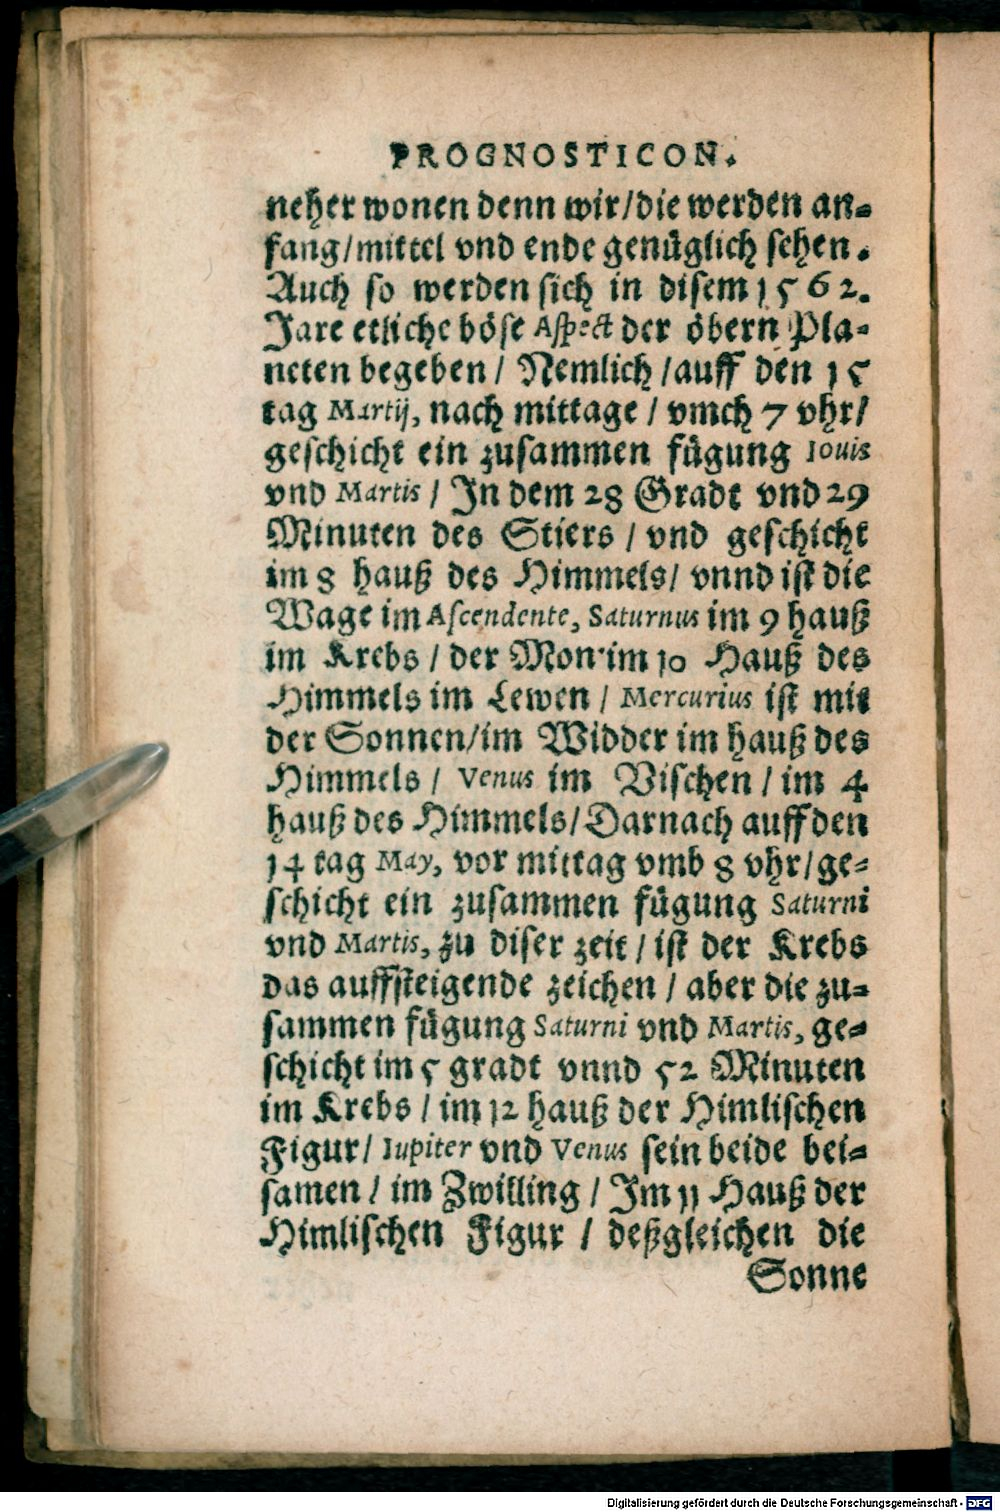 PROGNOSTICON.
neher wonen denn wir/die werden an⸗
fang/mittel vnd ende genüglich sehen.
Auch so werden sich in disem 1562.
Jare etliche böse Aspect der öbern Pla⸗
neten begeben / Nemlich /auff den 15
tag Martij, nach mittage / vmch 7 vhr/
geschicht ein zusammen fügung Iouis
vnd Martis / In dem 28 Gradt vnd 29
Minuten des Stiers / vnd geschicht
im 8 hauß des Himmels/ vnnd ist die
Wage im Ascendente, Saturnus im 9 hauß
im Krebs / der Mon im 10 Hauß des
Himmels im Lewen / Mercurius ist mit
der Sonnen/im Widder im hauß des
Himmels / Venus im Vischen / im 4
hauß des Himmels/Darnach auff den
14 tag May, vor mittag vmb 8 vhr/ge⸗
schicht ein zusammen fügung Saturni
vnd Martis, zu diser zeit / ist der Krebs
das auffsteigende zeichen / aber die zu⸗
sammen fügung Saturni vnd Martis, ge⸗
schicht im 5 gradt vnnd 52 Minuten
im Krebs / im 12 hauß der Himlischen
Figur/ Iupiter vnd Venus sein beide bei⸗
samen / im Zwilling / Im 11 Hauß der
Himlischen Figur / deßgleichen die
Sonne
Digitalisierung gefördert durch die Deutsche Forschungsgemeinschaft - DFG